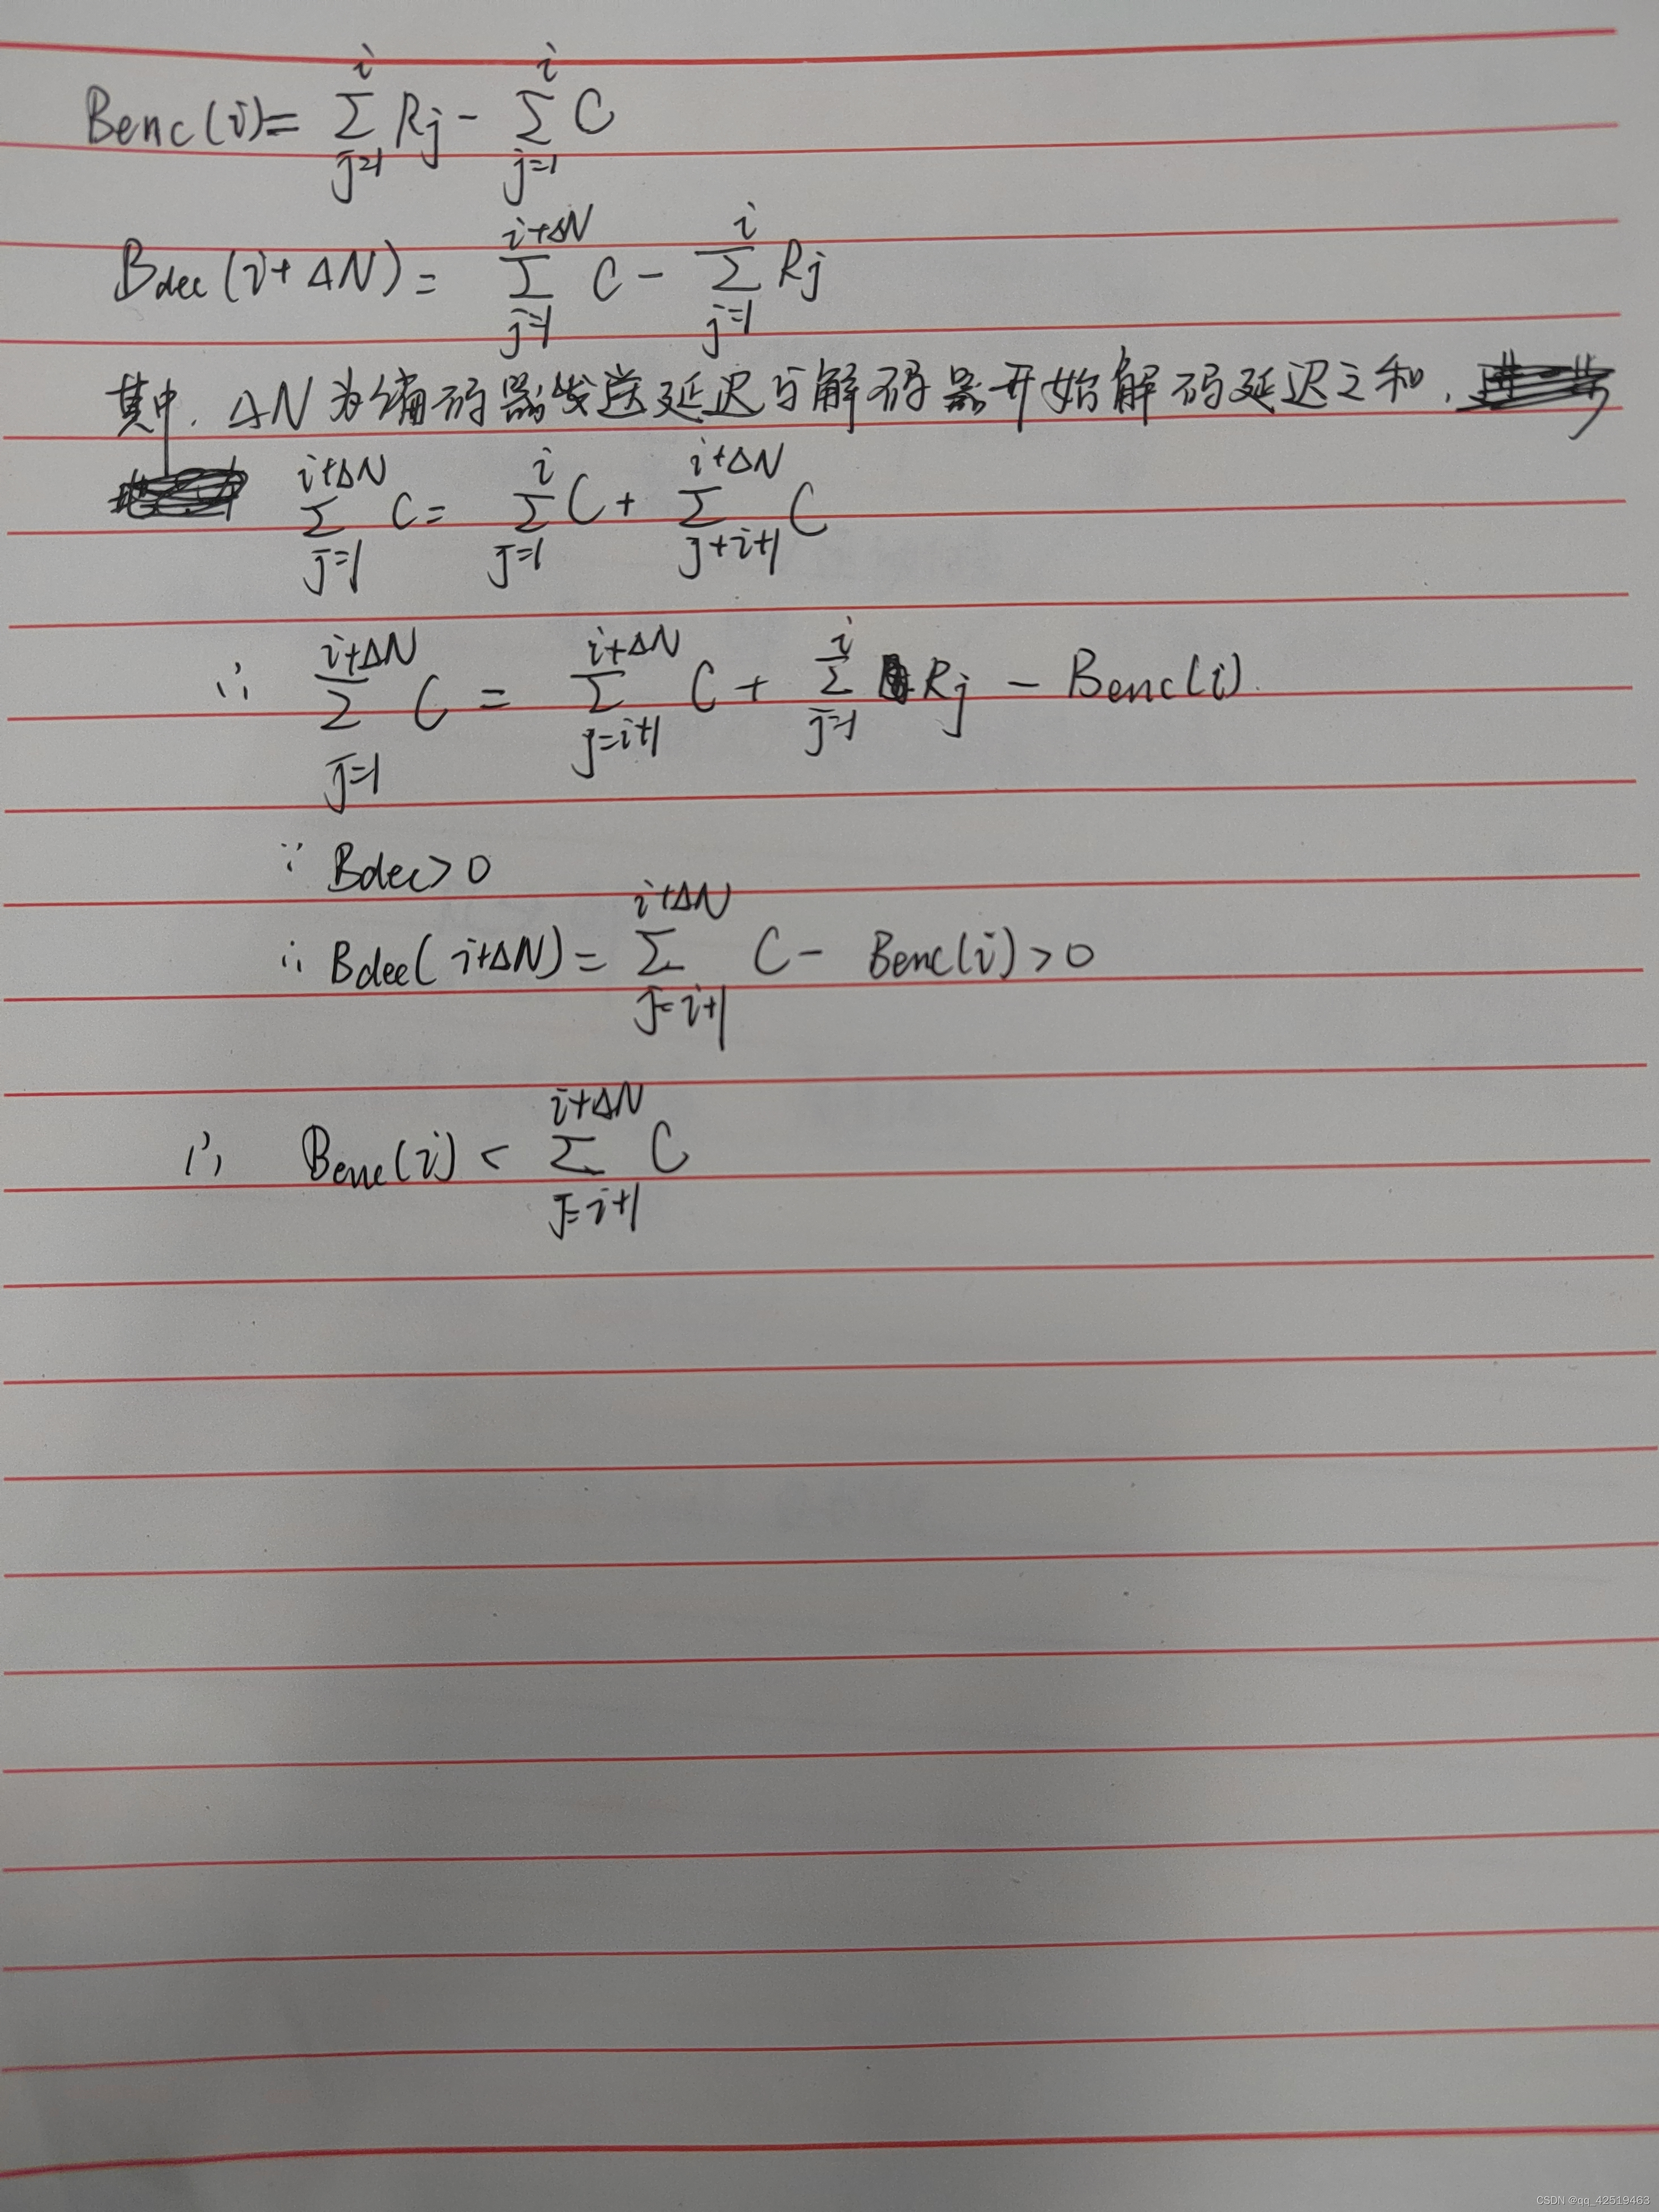 Benc(i) = \sum_{j=1}^{i} Rj - \sum_{j=1}^{i} C
Bdec(i+ΔN) = \sum_{j=1}^{i+ΔN} C - \sum_{j=1}^{i} Rj
其中, ΔN为编码器发送延迟与解码器开始解码延迟之和,
\sum_{j=1}^{i+ΔN} C = \sum_{j=1}^{i} C + \sum_{j+i+1}^{i+ΔN} C
∴ \sum_{j=1}^{i+ΔN} C = \sum_{j=i+1}^{i+ΔN} C + \sum_{j=1}^{i} Rj - Benc(i)
∵ Bdec > 0
∴ Bdec(i+ΔN) = \sum_{j=i+1}^{i+ΔN} C - Benc(i) > 0
∴ Benc(i) < \sum_{j=i+1}^{i+ΔN} C
CSDN @qq_42519463